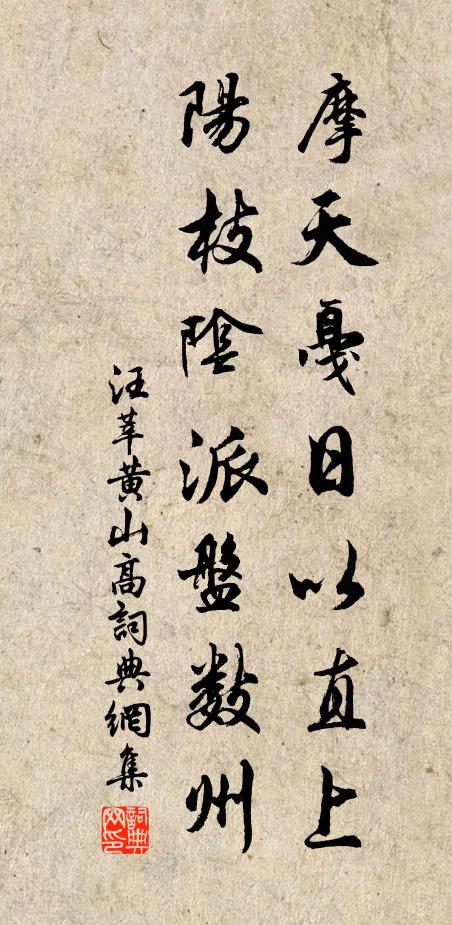 摩天戞日以直上
陽枝陰派盤数州
汪莘黄山高詞典網集
詞典网印